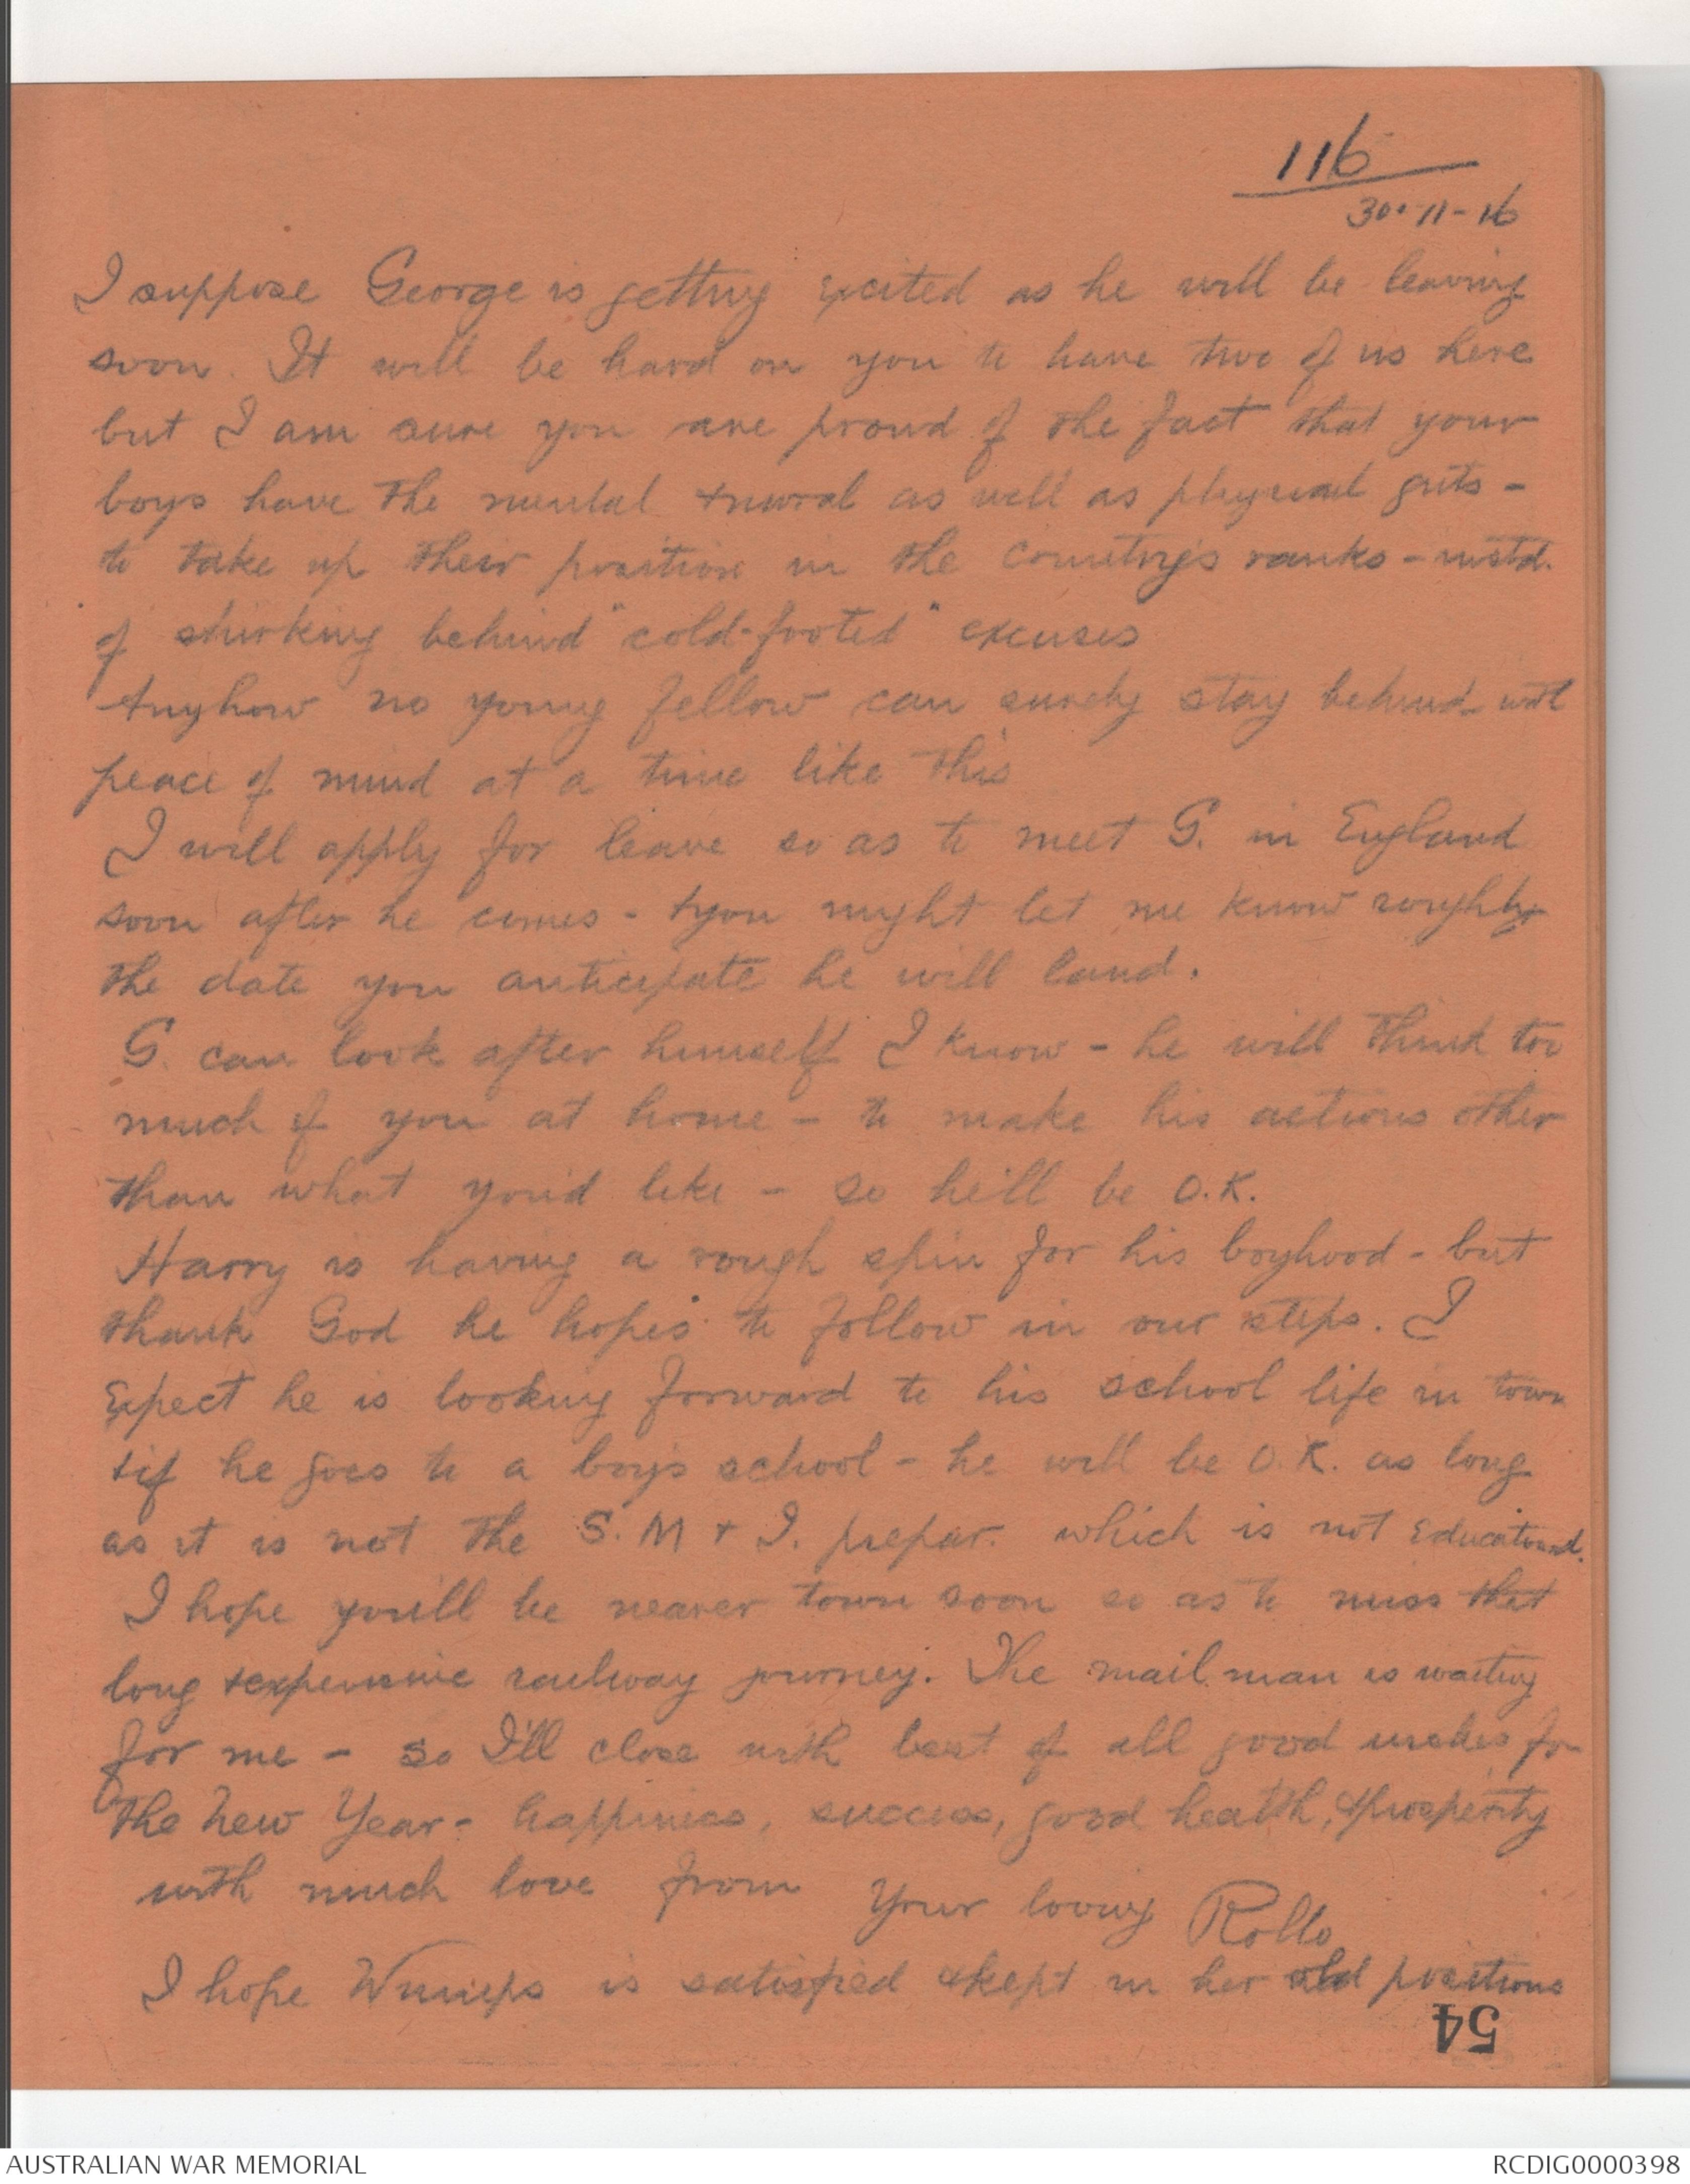 116
30-11-16
I suppose George is getting excited as he will be leaving
soon. It will be hard on you to have two of us here
but I am sure you are proud of the fact that your
boys have the mental & moral as well as physical guts -
to take up their position in the country's ranks - instd.
of shirking behind "cold-footed" excuses
Anyhow no young fellow can surely stay behind with
peace of mind at a time like this
I will apply for leave so as to meet G. in England
soon after he comes - & you might let me know roughly
the date you anticipate he will land.
G. can look after himself I know - he will think too
much of you at home - to make his actions other
than what you'd like - so he'll be O.K.
Harry is having a rough spin for his boyhood - but
thank God he hopes to follow in our steps. I
Expect he is looking forward to his school life in town
& if he goes to a boy's school - he will be O.K. as long
as it is not the S. M & I. prepar. which is not Educational.
I hope you'll be nearer town soon so as to miss that
long & expensive railway journey. The mail man is waiting
for me - so I'll close with best of all good wishes for
the New Year - happiness, success, good health, & prosperity
with much love from Your loving Rollo
I hope is satisfied & kept in her old positions
54
AUSTRALIAN WAR MEMORIAL
RCDIG0000398